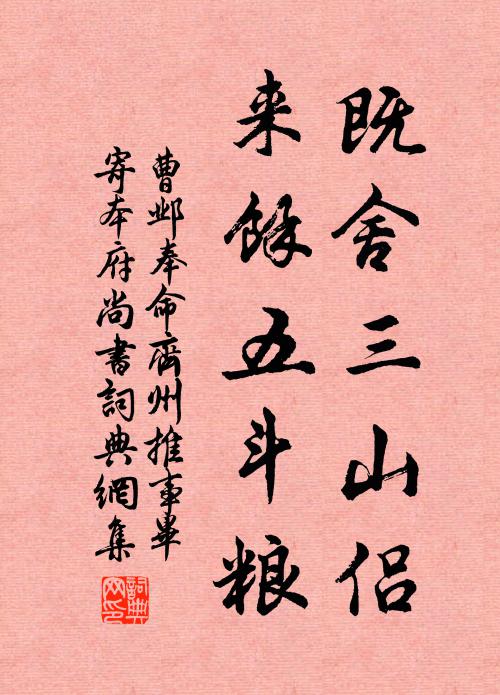 既舍三山侣
来餘五斗粮
曹邺奉命齊州推事畢
寄本府尚書詞典網集
詞典
网印